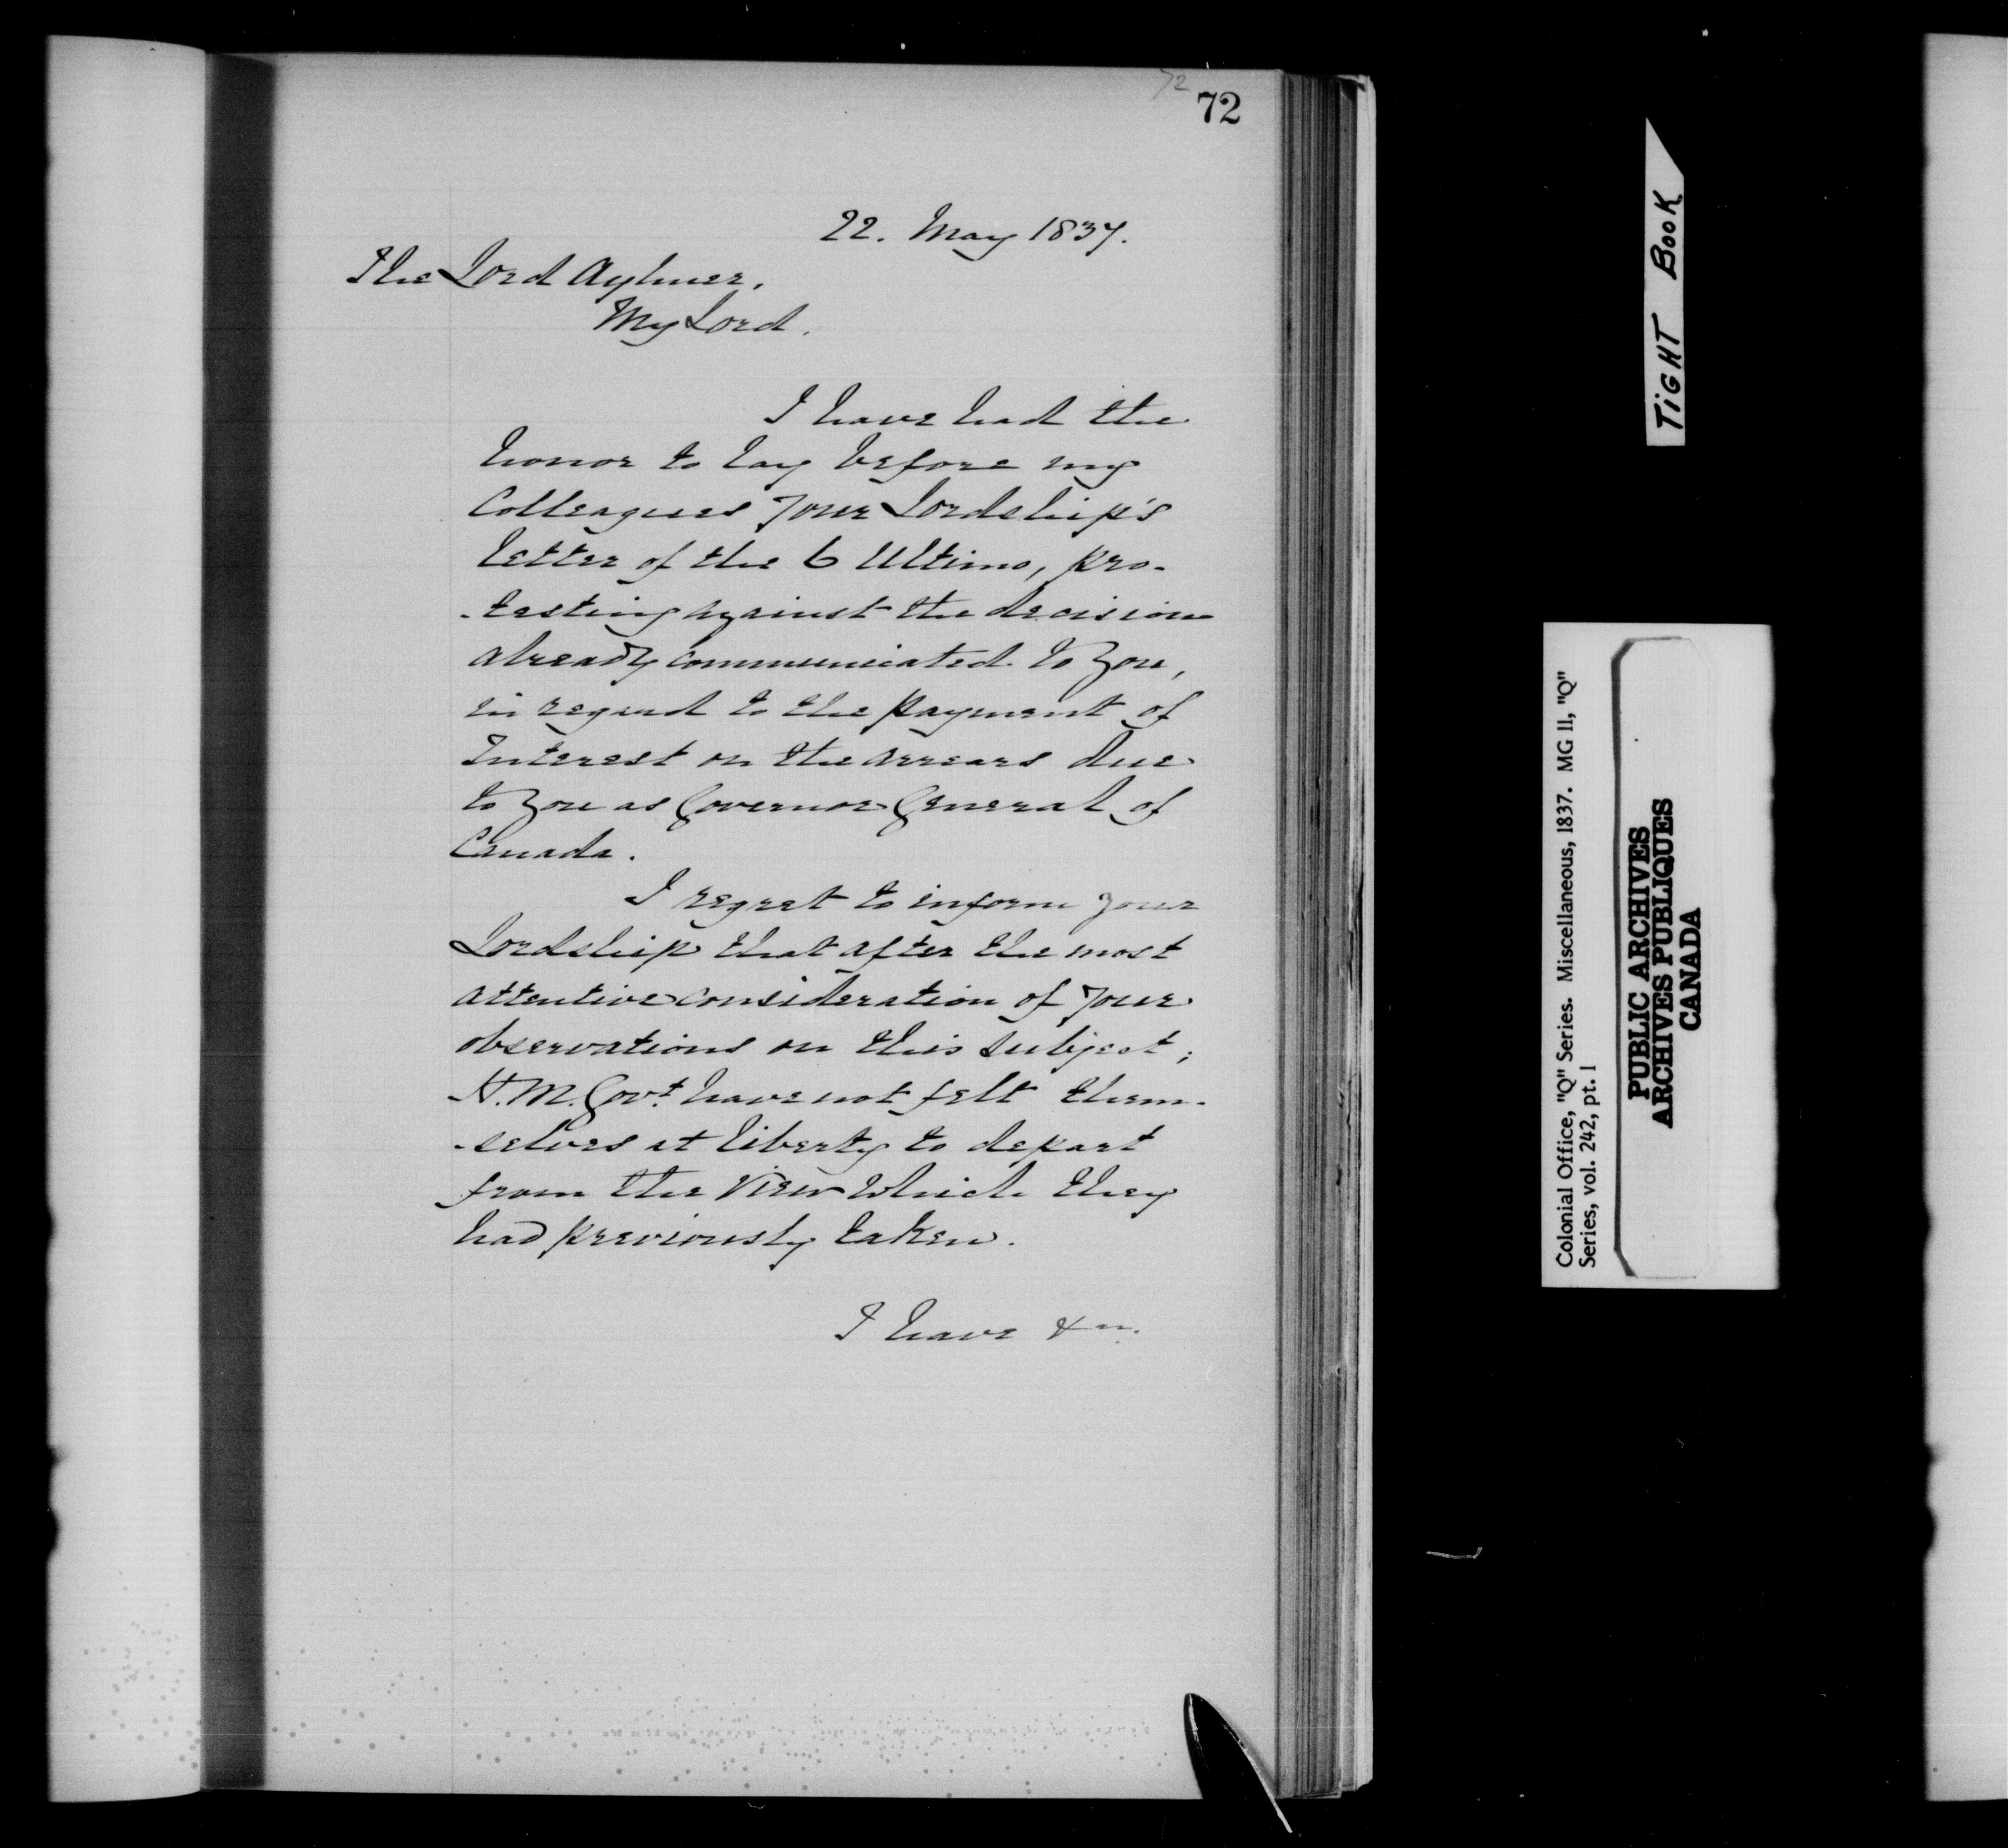 72
72
22. May 1837.
The Lord Aylmer.
My Lord.
I have had the
honor to lay before my
Colleagues Your Lordship's
letter of the 6 Ultimo, pro-
-testing against the decision
already communicated to you,
in regard to the payment of
Interest on the arrears due
to you as Governor General of
Canada.
I regret to inform your
Lordship that after the most
attentive consideration of your
observations on this subject;
H.M. Govt. have not felt them-
-selves at liberty to depart
from the view which they
had previously taken.
I have &c.
TIGHT BOOK
Colonial Office, "Q" Series. Miscellaneous, 1837. MG 11, "Q"
Series, vol. 242, pt. 1
PUBLIC ARCHIVES
ARCHIVES PUBLIQUES
CANADA